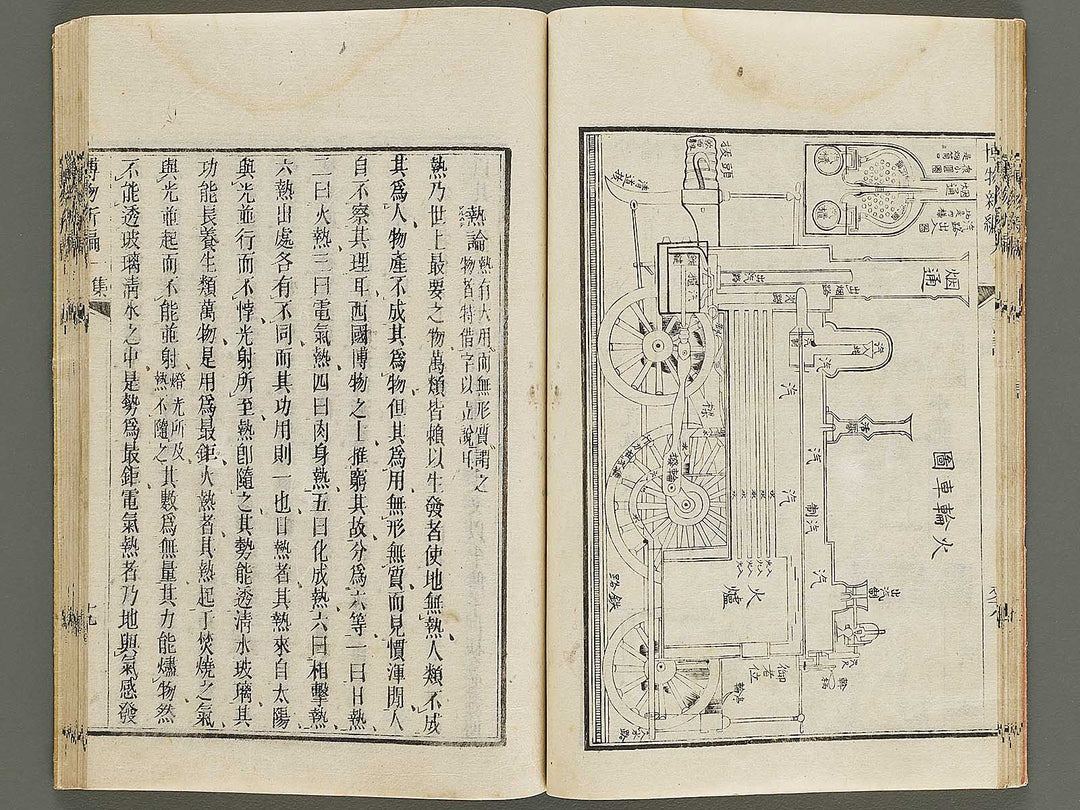 火輪車圖
烟通
汽
汽
汽
制汽
汽
火爐
御者位
出汽制
鐵路
撥輪
熱論熱有大用而無形質謂之
物者特借字以立說耳
熱乃世上最要之物萬類皆賴以生發者使地無熱人類不成
其爲人物產不成其爲物但其爲用無形無質而見慣渾閒人
自不察其理耳西國博物之士推窮其故分爲六等一曰日熱
二曰火熱三曰電氣熱四曰肉身熱五曰化成熱六曰相擊熱
六熱出處各有不同而其功用則一也日熱者其熱來自太陽
與光並行而不悖光射所至熱卽隨之其勢能透清水玻璃其
功能長養生類萬物是用爲最鉅火熱者其熱起于焚燒之氣
與光並起而不能並射燈光所及熱不隨之其數爲無量其力能燼物然
不能透玻璃清水之中是勢爲最鉅電氣熱者乃地與氣感發
博物新編一集